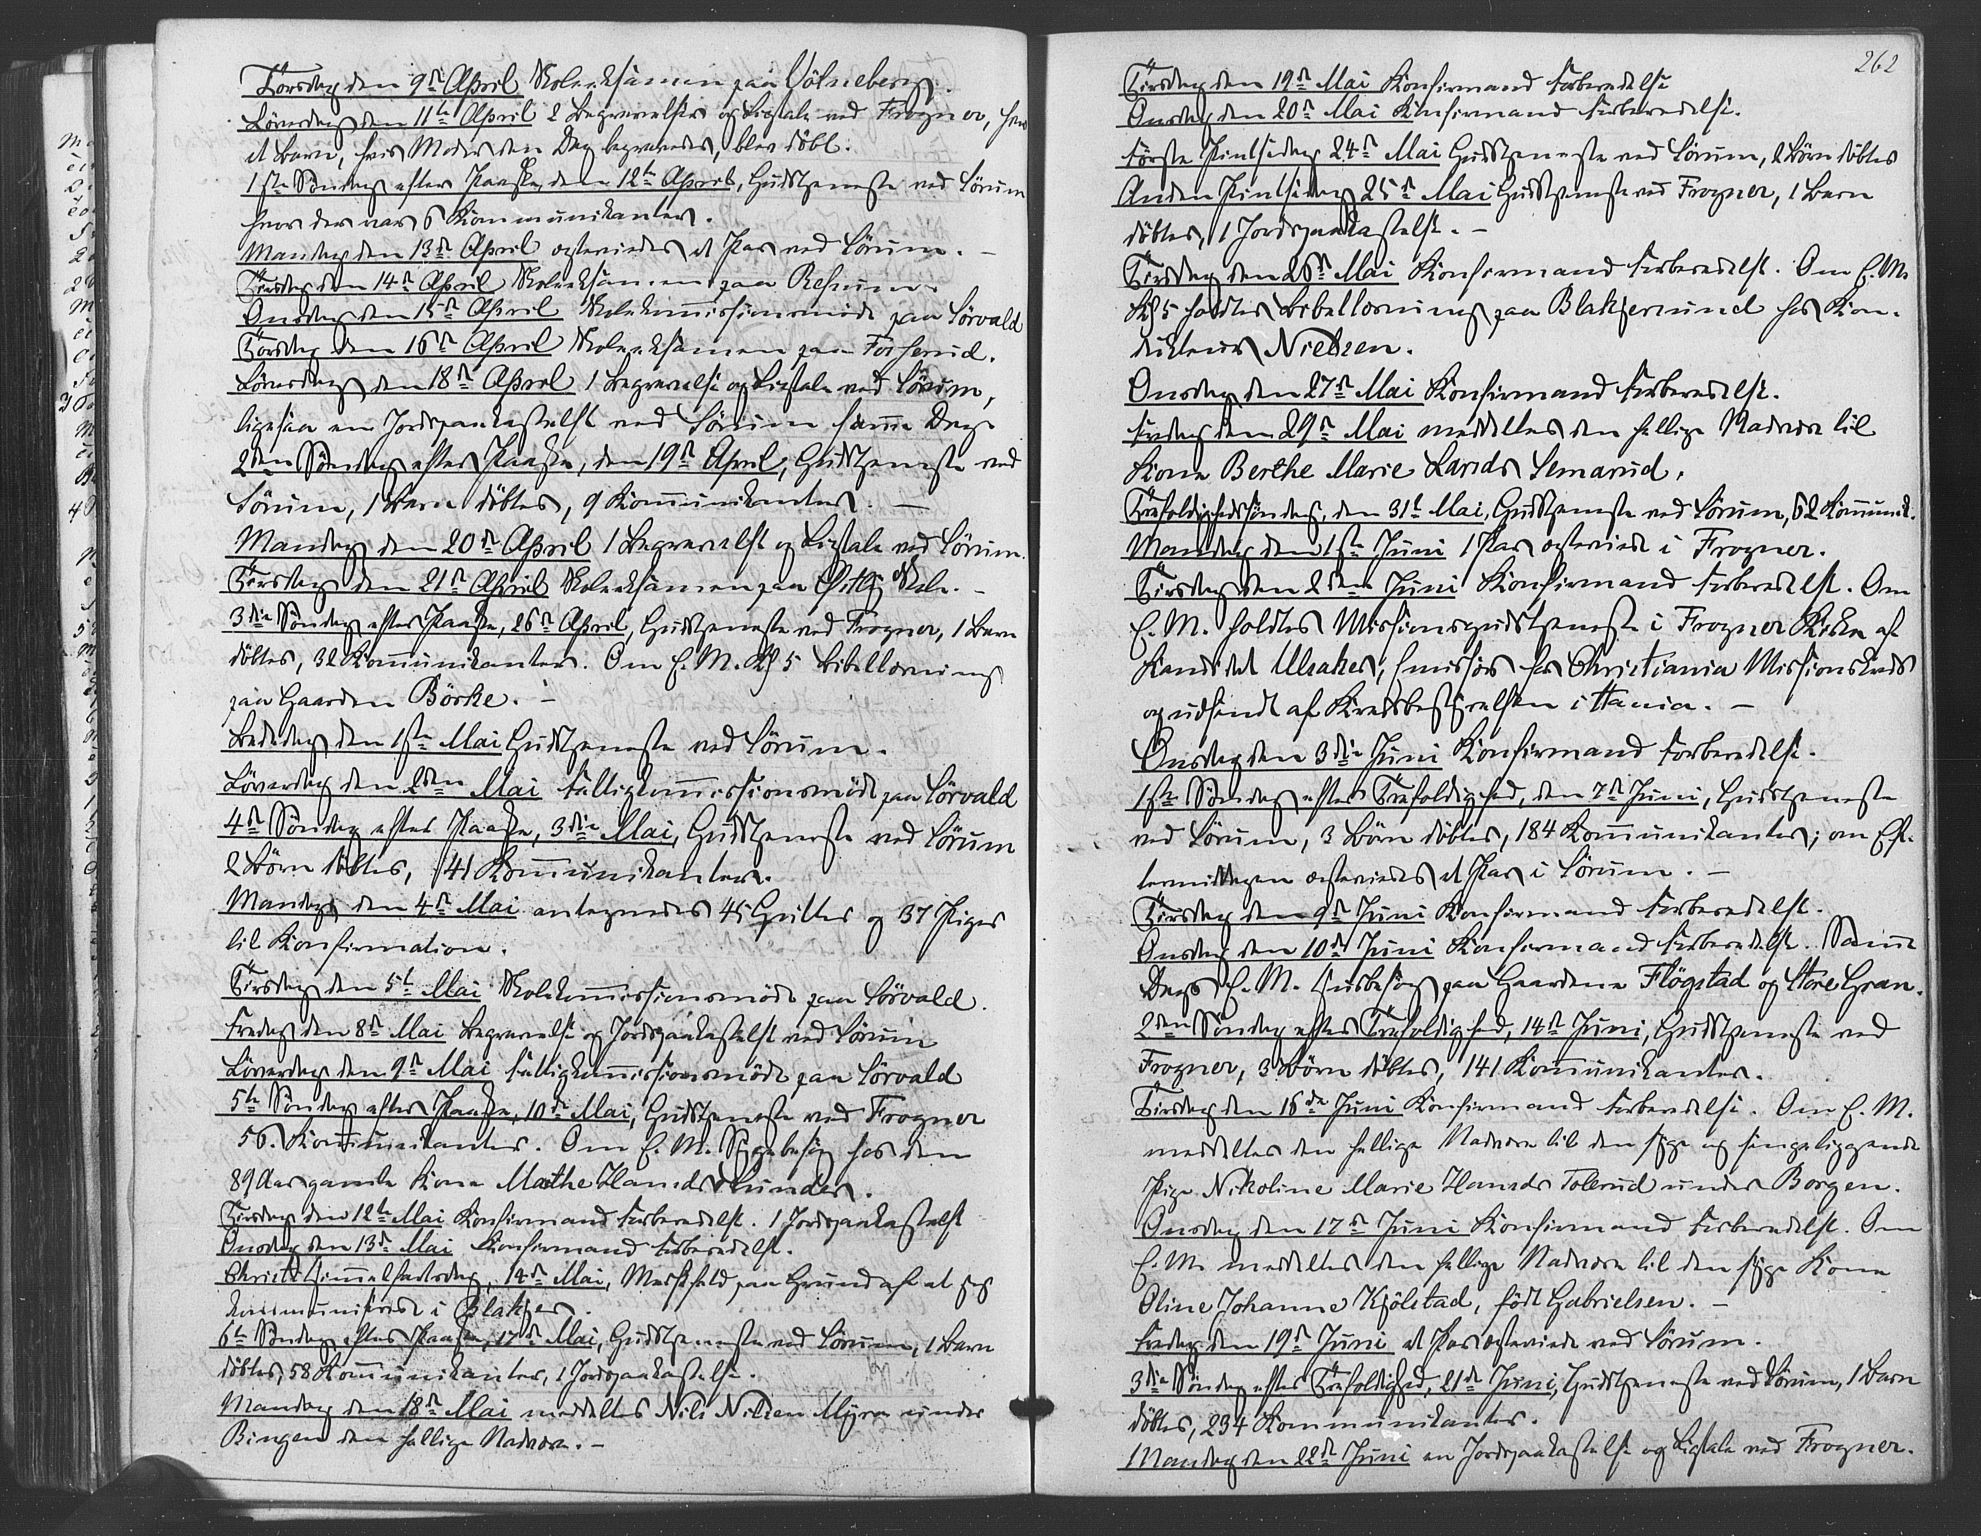 Torsdag den 9de April Skoleeksamen paa Vølneberg.
Løverdag den 11te April 2 Begravelser og Ligtale ved Frogner, hvor
et Barn, hvis Moder den Dag begravedes, blev døbt.
1ste Søndag efter Paaske, den 12te April, Gudstjeneste ved Sørum
hvor der var 6 Kommunikanter.
Mandag den 13de April egteviedes et Par ved Sørum. –
Tirsdag den 14de April Skoleeksamen paa Refsum.
Onsdag den 15de April Skolekommissionsmøde paa Sørvald
Torsdag den 16de April Skoleeksamen paa Fosserud.
Løverdag den 18de April 1 Begravelse og Ligtale ved Sørum,
ligesaa en Jordspaakastelse ved Sørum samme Dag.
2den Søndag efter Paaske, den 19de April, Gudstjeneste ved
Sørum, 1 Barn døbtes, 9 Kommunikanter. –
Mandag den 20de April 1 Begravelse og Ligtale ved Sørum.
Tirsdag den 21de April Skoleeksamen paa Skole. –
3die Søndag efter Paaske, 26de April, Gudstjeneste ved Frogner, 1 Barn
døbtes, 32 Kommunikanter. Om E. M. Kl 5 Bibellæsning
paa Gaarden Børke. –
Bededag den 1ste Mai Gudstjeneste ved Sørum.
Løverdag den 2den Mai Fattigkommissionsmøde paa Sørvald
4de Søndag efter Paaske, 3die Mai, Gudstjeneste ved Sørum
2 Børn døbtes, 141 Kommunikanter.
Mandag den 4de Mai antegnedes 45 Gutter og 37 Piger
til Konfirmation.
Tirsdag den 5te Mai Skolekommissionsmøde paa Sørvald.
Fredag den 8de Mai Begravelse og Jordspaakastelse ved Sørum
Løverdag den 9de Mai Fattigkommissionsmøde paa Sørvald
5te Søndag efter Paaske, 10de Mai, Gudstjeneste ved Frogner
56. Kommunikanter. Om E. M. Sygebesøg hos den
89 Aar gamle Kone Mathe Hansdr
Tirsdag den 12te Mai Konfirmand Forberedelse. 1 Jordspaakastelse
Onsdag den 13de Mai Konfirmand Forberedelse.
Christi Himmelfartsdag, 14de Mai, Messefald paa Grund af at jeg
kommunicerede i Blakjer.
6te Søndag efter Paaske, 17de Mai, Gudstjeneste ved Sørum, 1 Barn
døbtes, 58 Kommunikanter, 1 Jordspaakastelse.
Mandag den 18de Mai meddeltes Nils Nilsen Myra under
Bingen den hellige Nadvere. –
262
Tirsdag den 19de Mai Konfirmand Forberedelse
Onsdag den 20de Mai Konfirmand Forberedelse.
Første Pintsedag 24de Mai Gudstjeneste ved Sørum, 2 Børn døbtes
Anden Pintsedag 25de Mai Gudstjeneste ved Frogner, 1 Barn
døbtes, 1 Jordspaakastelse. –
Tirsdag den 26de Mai Konfirmand Forberedelse. Om E. M.
Kl 5 holdtes Bibellæsning paa Blakjersund hos Kon-
duktør Nielsen.
Onsdag den 27de Mai Konfirmand Forberedelse.
Fredag den 29de Mai meddeltes den hellige Nadvere til
Kone Berthe Marie Larsdr Semarud.
Trefoldighedssøndag, den 31te Mai, Gudstjeneste ved Sørum, 62 Kommunik.
Mandag den 1ste Juni 1 Par egteviede i Frogner.
Tirsdag den 2den Juni Konfirmand Forberedelse. Om
E. M. holdtes Missionsgudstjeneste i Frogner Kirke af
Kandidat Ulsaker, Emissær for Christiania Missionskreds
og udsendt af Kredsbestyrelsen i Stania. –
Onsdag den 3die Juni Konfirmand Forberedelse.
1ste Søndag efter Trefoldighed, den 7de Juni, Gudstjeneste
ved Sørum, 3 Børn døbtes, 184 Kommunikanter; om Ef-
termiddagen egteviedes et Par i Sørum. –
Tirsdag den 9de Juni Konfirmand Forberedelse.
Onsdag den 10de Juni Konfirmand Forberedelse. Samme
Dags E. M. Husbesøg paa Gaardene Fløgstad og Store Gran.
2den Søndag efter Trefoldighed, 14de Juni, Gudstjeneste ved
Frogner, 3 Børn døbtes, 141 Kommunikanter.
Tirsdag den 16de Juni Konfirmand Forberedelse. Om E. M.
meddeltes den hellige Nadvere til den syge og sengeliggende
Pige Nikoline Marie Hansdr Tolerud under Borgen.
Onsdag den 17de Juni Konfirmand Forberedelse. Om
E. M. meddeltes den hellige Nadvere til den syge Kone
Oline Johanne Kjølstad, født Gabrielsen. –
Fredag den 19de Juni et Par egteviede ved Sørum.
3die Søndag efter Trefoldighed, 21de Juni, Gudstjeneste ved Sørum, 1 Barn
døbtes, 234 Kommunikanter.
Mandag den 22de Juni en Jordspaakastelse og Ligtale ved Frogner.